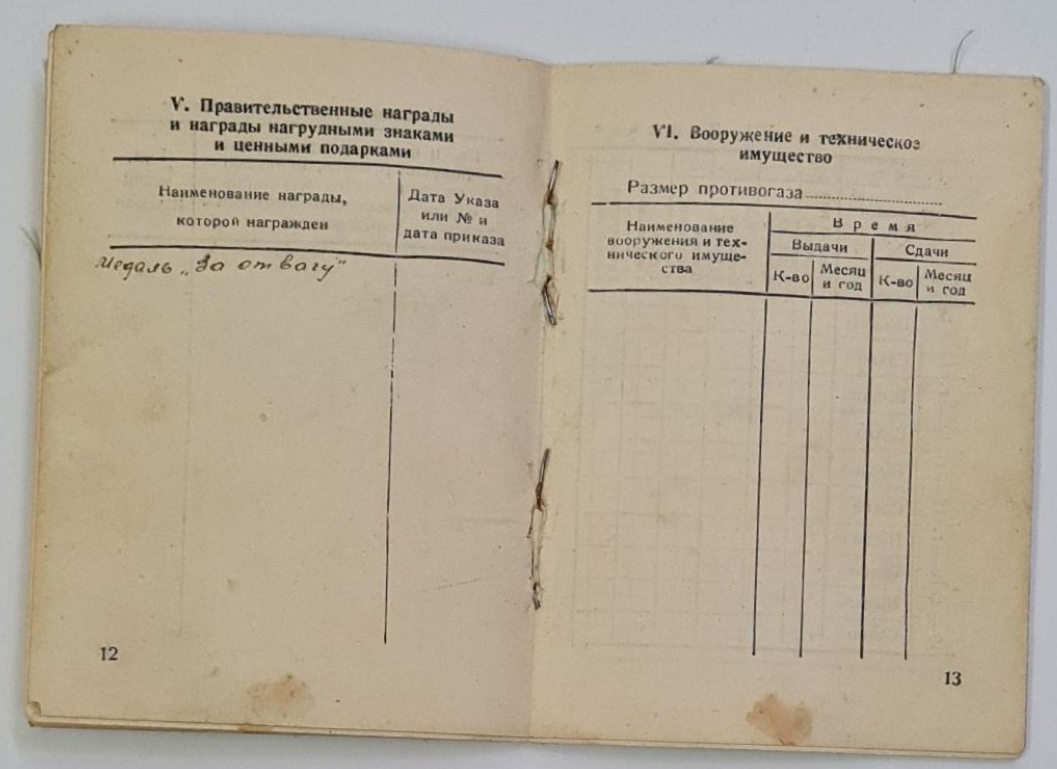 V. Правительственные награды
и награды нагрудными знаками
и ценными подарками
Наименование награды,
которой награжден
Дата Указа
или № и
дата приказа
Медаль „За отвагу"
12
VI. Вооружение и техническое
имущество
Размер противогаза
Наименование
вооружения и тех-
нического имуще-
ства
Время
Выдачи
Сдачи
К-во
Месяц
и год
К-во
Месяц
и год
13